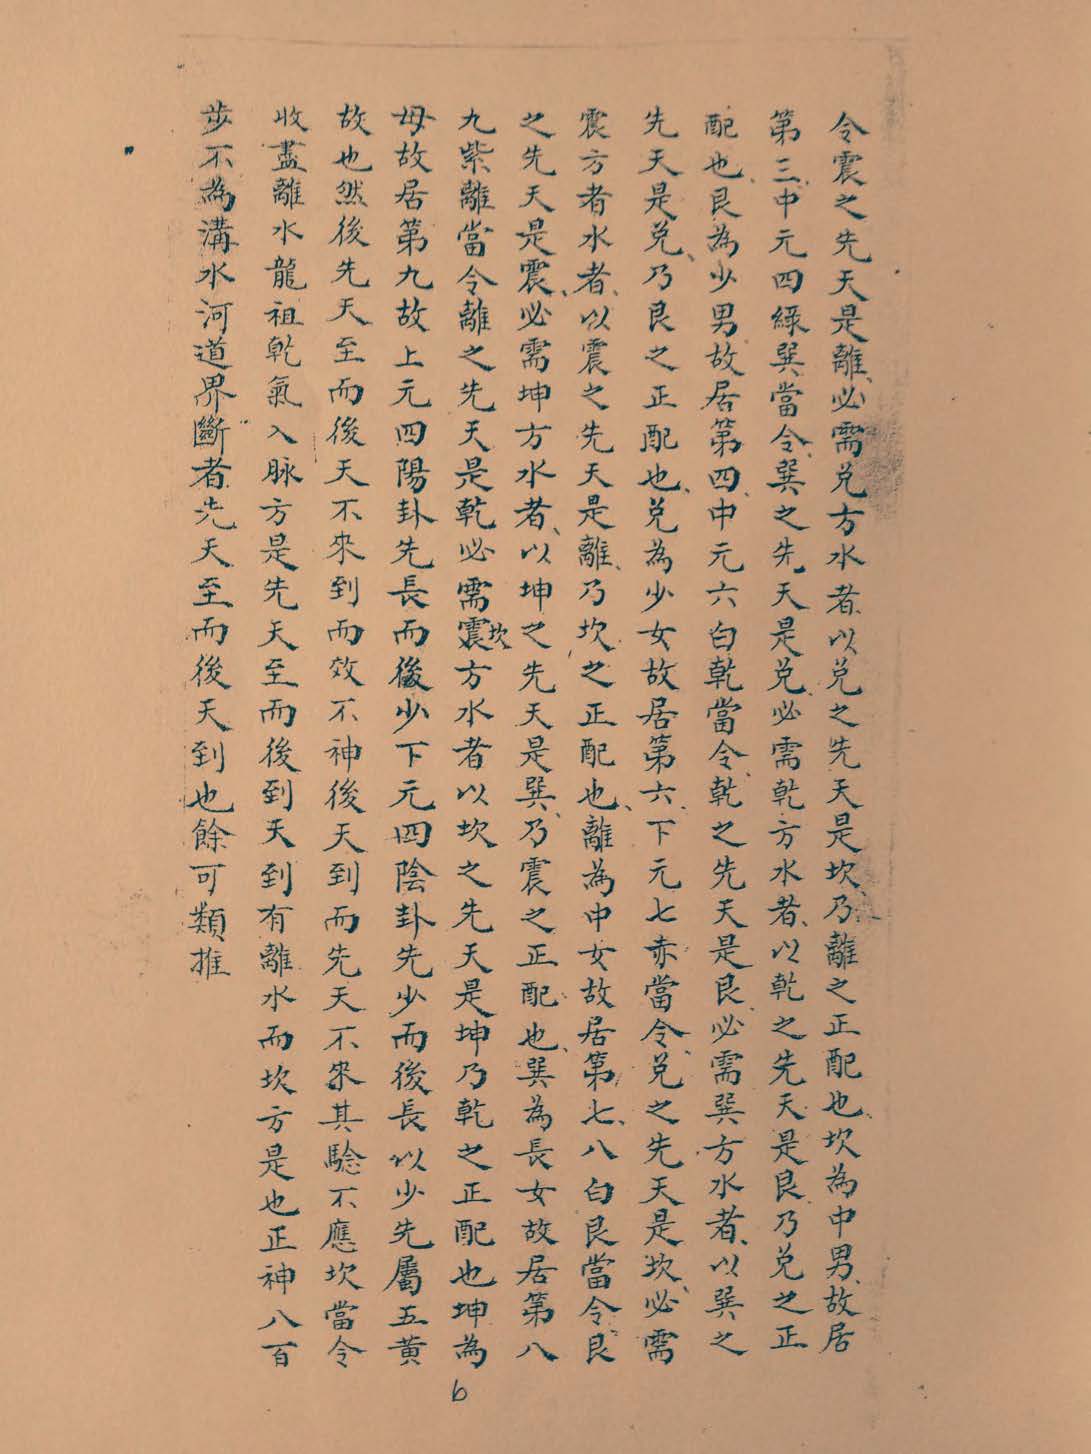 令震之先天是離、必需兌方水者、以兌之先天是坎、乃離之正配也、坎為中男、故居
第三、中元四綠巽當令、巽之先天是兌、必需乾方水者、以乾之先天是艮、乃兌之正
配也、艮為少男故居第四、中元六白乾當令、乾之先天是艮、必需巽方水者、以巽之
先天是兌、乃艮之正配也、兌為少女故居第六、下元七赤當令、兌之先天是坎、必需
震方者水者、以震之先天是離、乃坎之正配也、離為中女故居第七、八白艮當令、艮
之先天是震、必需坤方水者、以坤之先天是巽、乃震之正配也、巽為長女故居第八
九紫離當令離之先天是乾必需震坎方水者以坎之先天是坤乃乾之正配也坤為
母故居第九故上元四陽卦先長而後少下元四陰卦先少而後長以少先屬五黃
故也然後先天至而後天不來到而效不神後天到而先天不來其驗不應坎當令
收盡離水龍祖乾氣入脉方是先天至而後到天到有離水而坎方是也正神八百
步不為溝水河道界斷者先天至而後天到也餘可類推
6